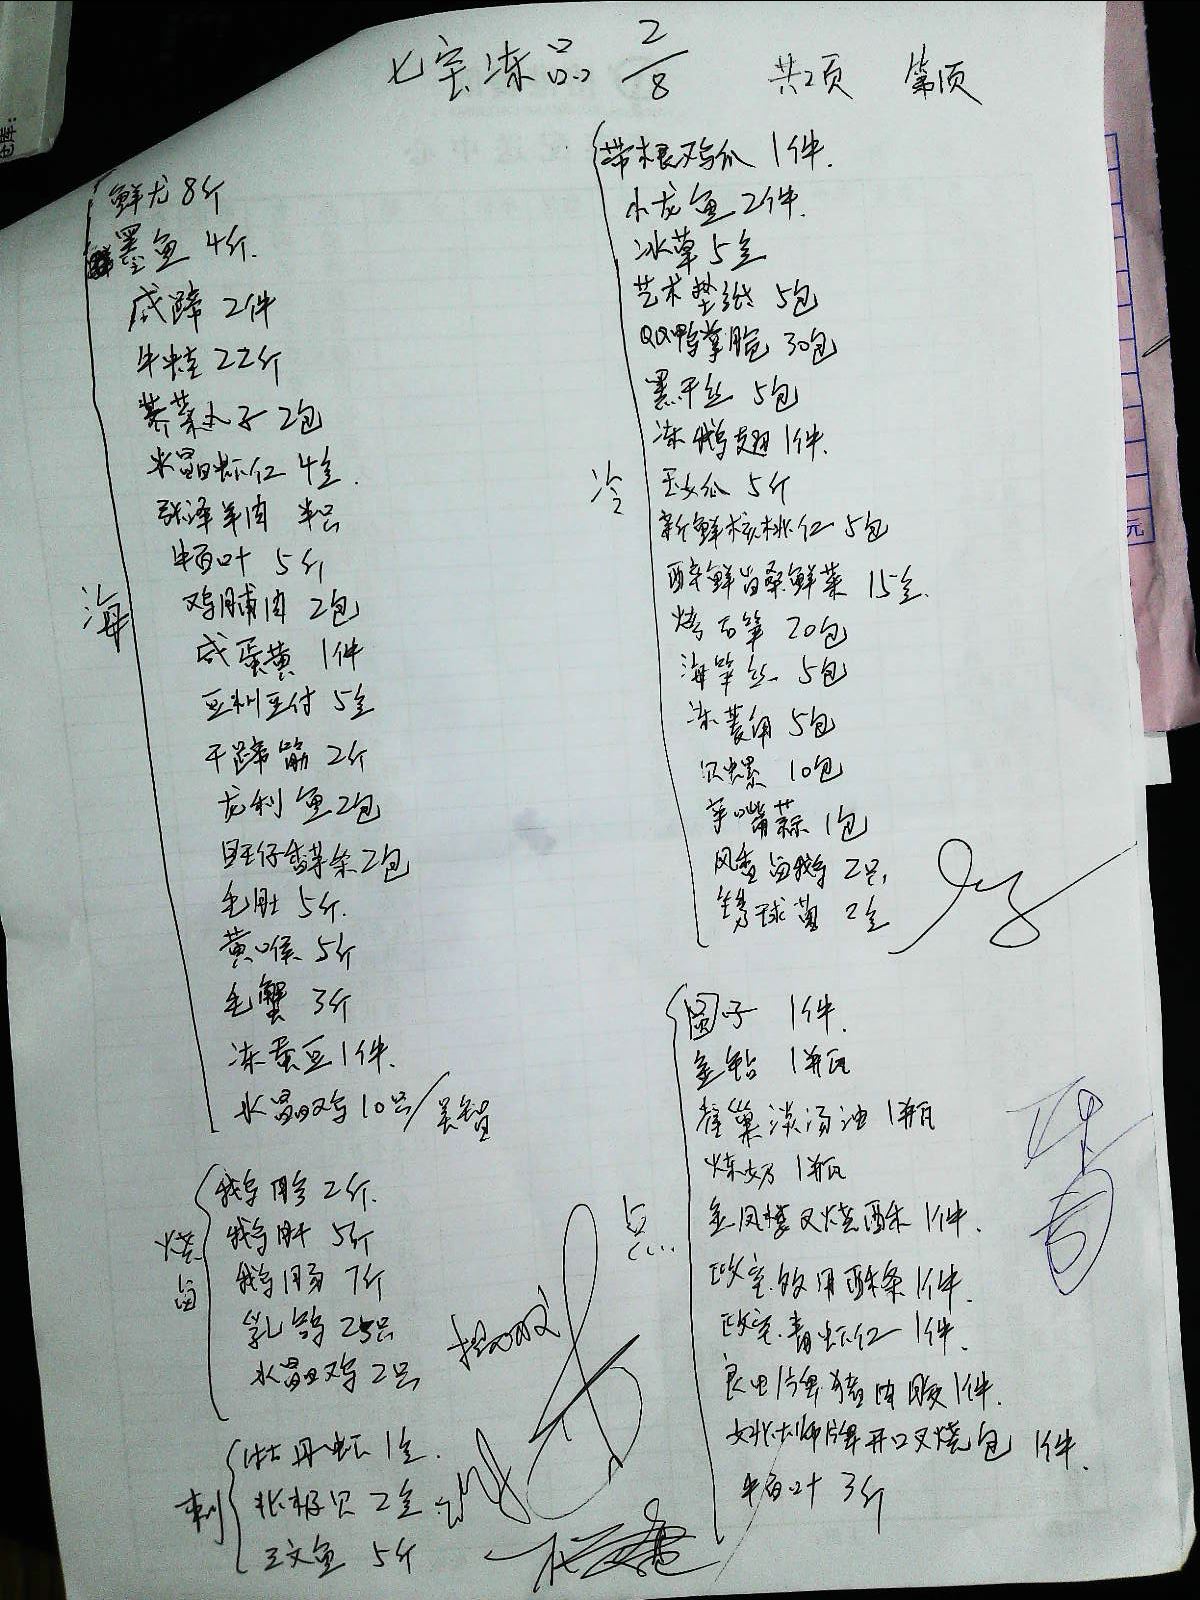 七宝冻品 2/8 共2页 第1页
鲜尤 8斤
墨鱼 4斤.
咸蹄 2件
牛蛙 22斤
荠菜丸子 2包
水晶虾仁 4盒.
张泽羊肉 半只
牛百叶 5斤
鸡脯肉 2包
咸蛋黄 1件
豆付 5盒
干蹄筋 2斤
龙利鱼 2包
旺仔香芋条 2包
毛肚 5斤.
黄喉 5斤
毛蟹 3斤
冻蚕豆 1件.
水晶鸡 10只/
海
烧卤
鹅胗 2斤.
鹅肝 5斤
鹅肠 7斤
乳鸽 25只
水晶鸡 2只
刺
牡丹虾 1盒.
北极贝 2盒
三文鱼 5斤
冷
带根鸡爪 1件.
小龙鱼 2件.
冰草 5盒
艺术垫纸 5包
QQ鸭掌脱 30包
黑干丝 5包
冻鹅翅 1件.
玉女瓜 5斤
新鲜核桃仁 5包
鲜菜 15盒.
烤古笋 20包
海笋丝 5包
冻菱角 5包
贝螺 10包
嘴蒜 1包
风香卤鹅 2只,
绣球菌 2盒
点
圆子 1件.
金钻 1瓶
雀巢淡汤油 1瓶
炼奶 1瓶
金凤楼叉烧酥 1件.
用酥条 1件.
青虾仁 1件.
牌猪肉 1件.
大师牌开口叉烧包 1件.
牛百叶 3斤